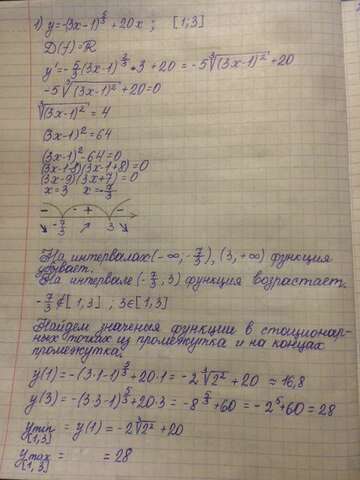 1) y=-(3x-1)^{5/3}+20x ; [1,3]
D(f)=ℝ
y'=-5/3(3x-1)^{2/3}·3+20=-5∛(3x-1)²+20
-5∛(3x-1)²+20=0
∛(3x-1)²=4
(3x-1)²=64
(3x-1)²-64=0
(3x-1-8)(3x-1+8)=0
(3x-9)(3x+7)=0
x=3 x=-7/3
- - + -
↘ -7/3 ↗ 3 ↘
На интервалах (-∞;-7/3), (3,+∞) функция
убывает.
На интервале (-7/3,3) функция возрастает.
-7/3∉[1,3] ; 3∈[1,3]
Найдем значения функции в стационар-
ных точках из промежутка и на концах
промежутка:
y(1)=-(3·1-1)^{5/3}+20·1=-2∛2²+20≈16,8
y(3)=-(3·3-1)^{5/3}+20·3=-8^{5/3}+60=-2⁵+60=28
y min [1,3] = y(1)=-2∛2²+20
y max [1,3] = =28